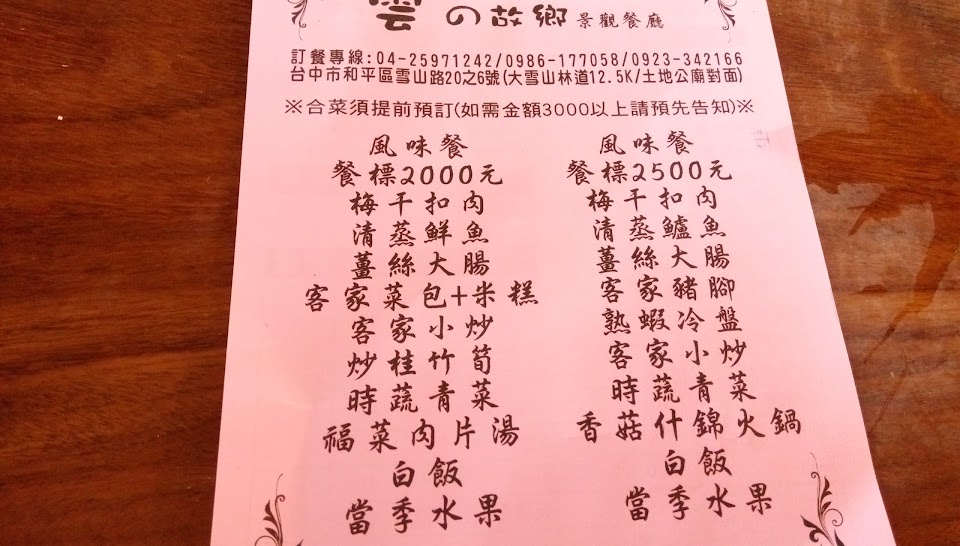 雲の故鄉 景觀餐廳
訂餐專線:04-25971242/0986-177058/0923-342166
台中市和平區雪山路20之6號(大雪山林道12.5K/土地公廟對面)
※合菜須提前預訂(如需金額3000以上請預先告知)※
風味餐
餐標2000元
梅干扣肉
清蒸鮮魚
薑絲大腸
客家菜包+米糕
客家小炒
炒桂竹筍
時蔬青菜
福菜肉片湯
白飯
當季水果
風味餐
餐標2500元
梅干扣肉
清蒸鱸魚
薑絲大腸
客家豬腳
熟蝦冷盤
客家小炒
時蔬青菜
香菇什錦火鍋
白飯
當季水果